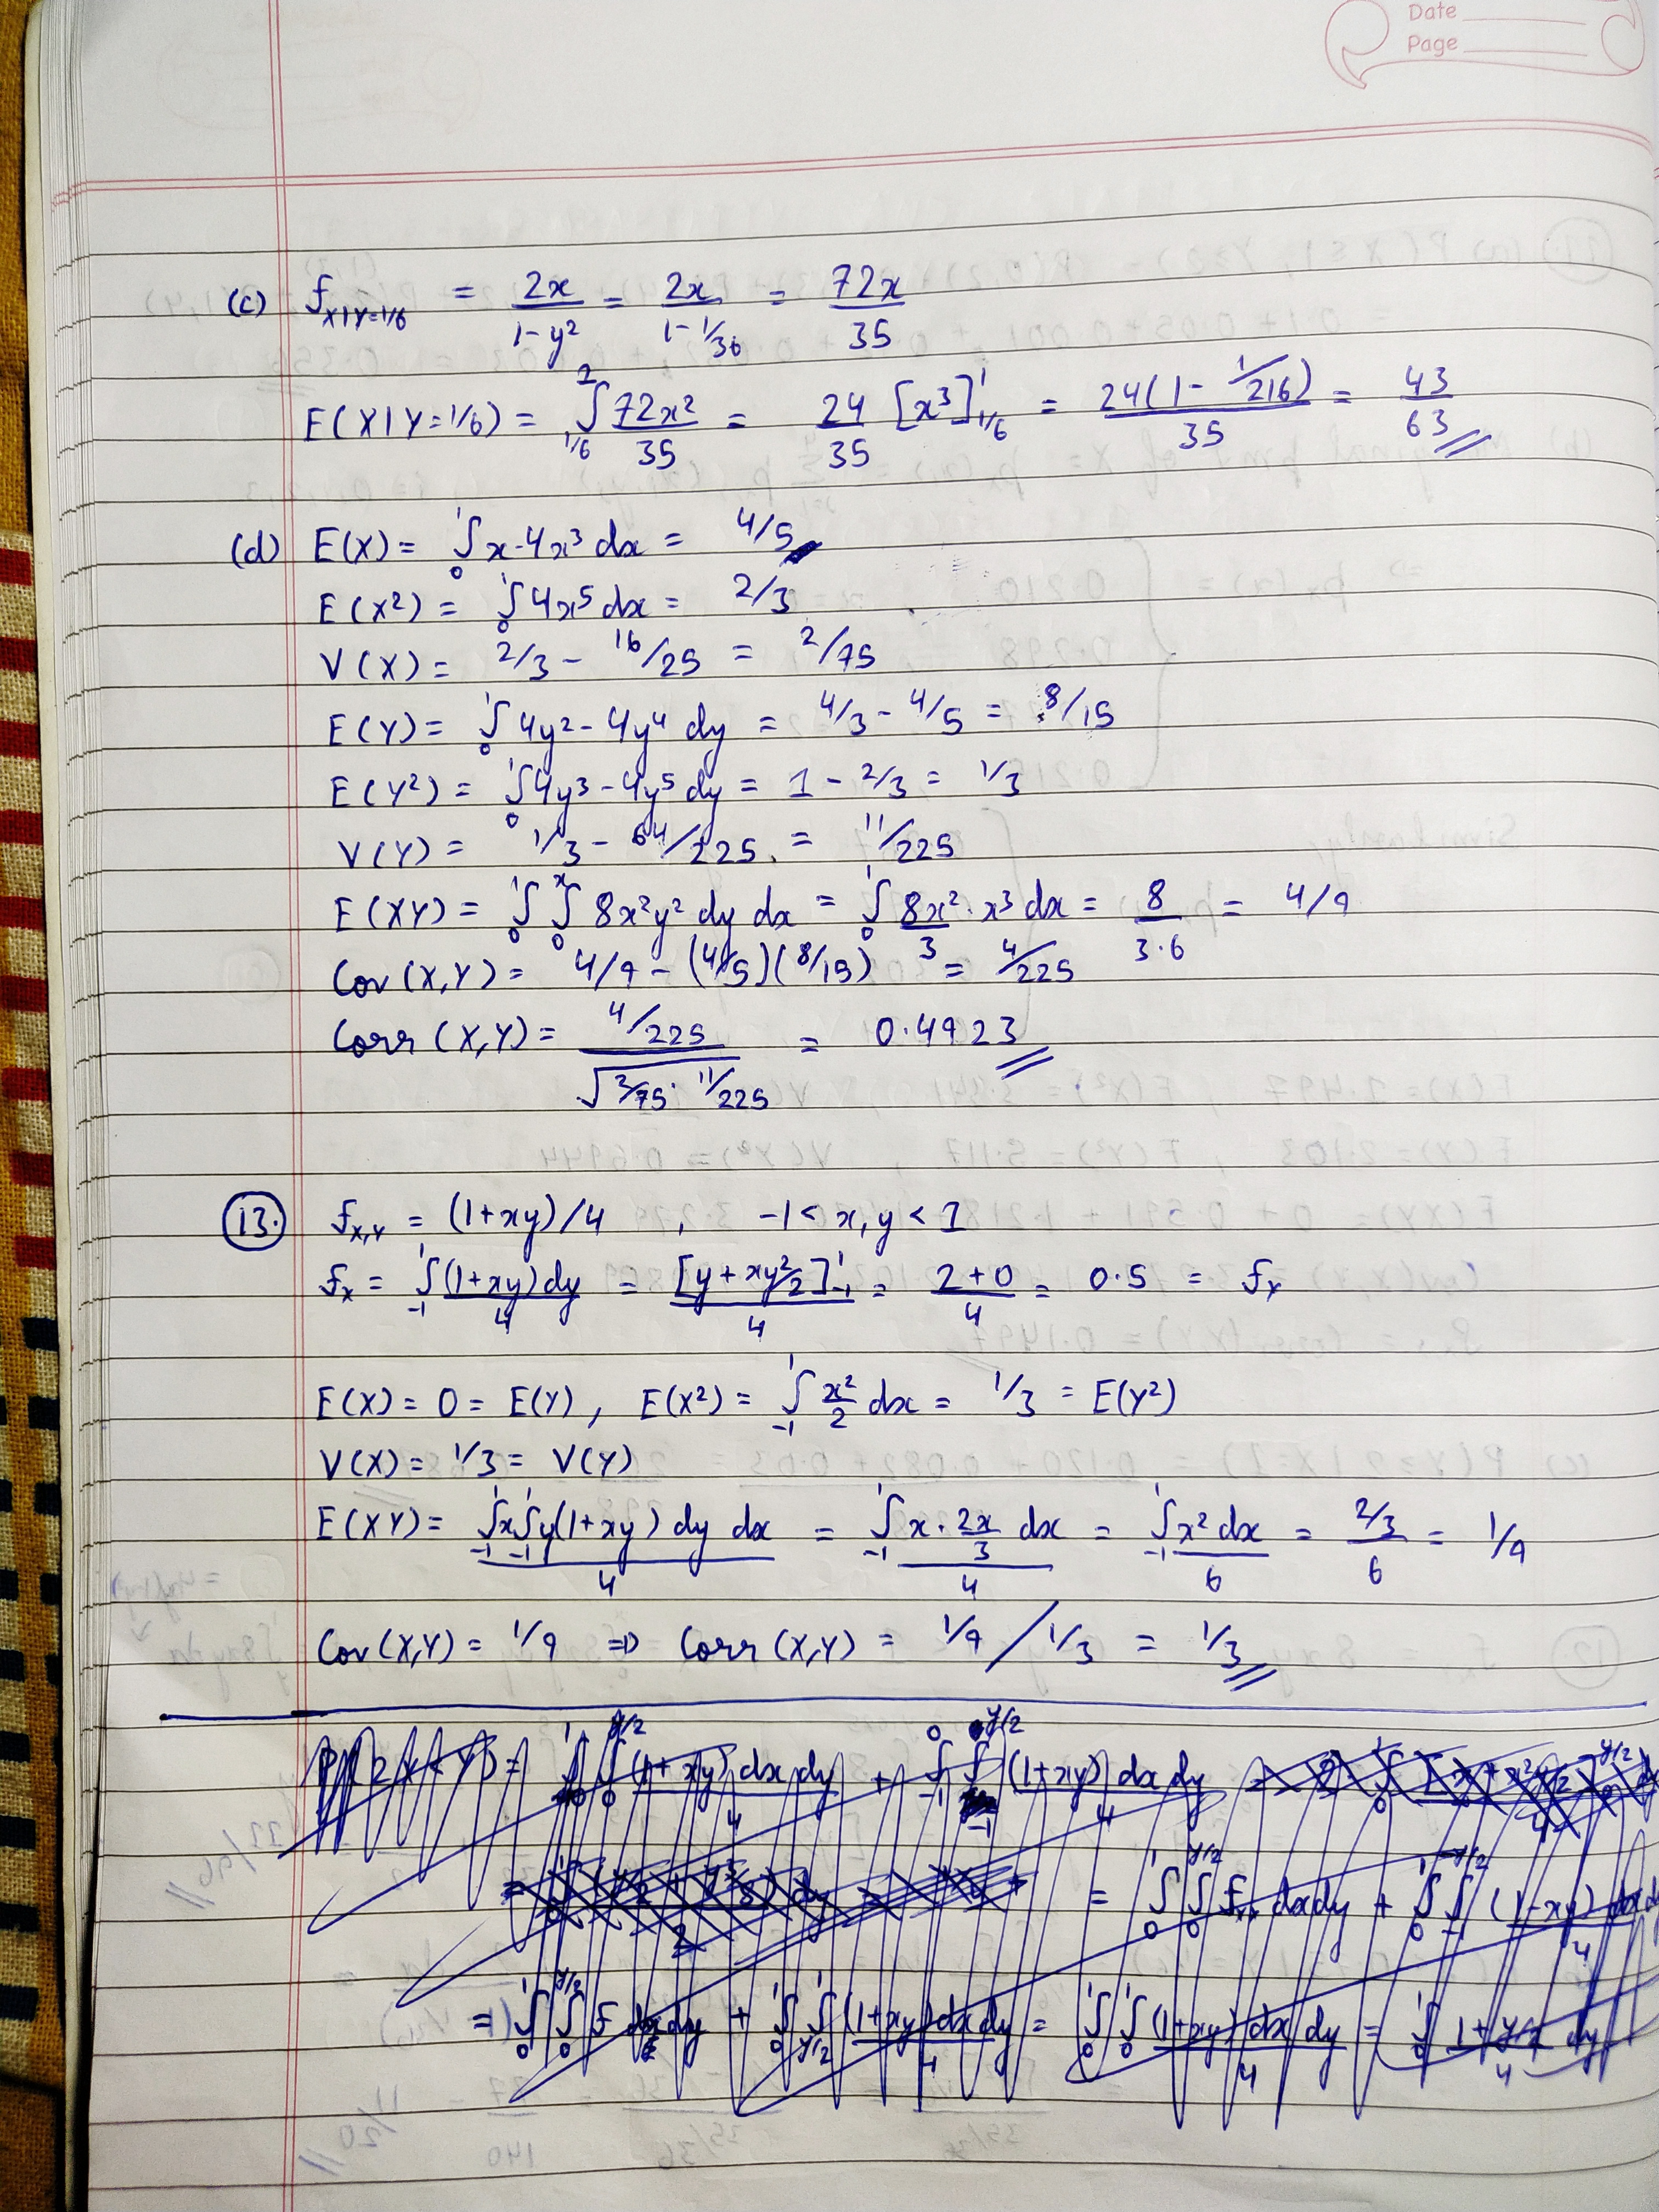 Date
Page
(c) f_{X|Y=1/6} = 2x/(1-y²) = 2x/(1-1/36) = 72x/35
E(X|Y=1/6) = ∫_{1/6}^{2} 72x²/35 = 24/35 [x³]_{1/6}^{1} = 24(1-1/216)/35 = 43/63
(d) E(X) = ∫_0^1 x·4x³ dx = 4/5
E(X²) = ∫_0^1 4x⁵ dx = 2/3
V(X) = 2/3 - 16/25 = 2/75
E(Y) = ∫_0^1 4y² - 4y⁴ dy = 4/3 - 4/5 = 8/15
E(Y²) = ∫_0^1 4y³ - 4y⁵ dy = 1 - 2/3 = 1/3
V(Y) = 1/3 - 64/225 = 11/225
E(XY) = ∫_0^1 ∫_0^x 8x²y² dy dx = ∫_0^1 8x²/3 · x³ dx = 8/(3·6) = 4/9
Cov(X,Y) = 4/9 - (4/5)(8/15) = 4/225
Corr(X,Y) = (4/225)/√(2/75 · 11/225) = 0.4923
13. f_{X,Y} = (1+xy)/4 , -1 < x, y < 1
f_X = ∫_{-1}^1 (1+xy)dy/4 = [y+xy²/2]_{-1}^1/4 = (2+0)/4 = 0.5 = f_Y
E(X) = 0 = E(Y), E(X²) = ∫_{-1}^1 x²/2 dx = 1/3 = E(Y²)
V(X) = 1/3 = V(Y)
E(XY) = ∫_{-1}^1 x ∫_{-1}^1 y(1+xy) dy dx/4 = ∫_{-1}^1 x · 2x/3 dx/4 = ∫_{-1}^1 x² dx/6 = (2/3)/6 = 1/9
Cov(X,Y) = 1/9 ⇒ Corr(X,Y) = 1/9 / 1/3 = 1/3
P(2X<Y) = ∫_0^1 ∫_0^{y/2} (1+xy) dx dy/4 + ∫_{-1}^0 ∫_{-1}^{y/2} (1+xy) dx dy/4
= ∫_0^1 ∫_0^{y/2} f dx dy + ∫_0^1 ∫_{y/2}^1 (1+xy) dx dy/4 = ∫_0^1 ∫_0^1 (1+xy) dx dy/4 = ∫_0^1 (1+y/2)/4 dy